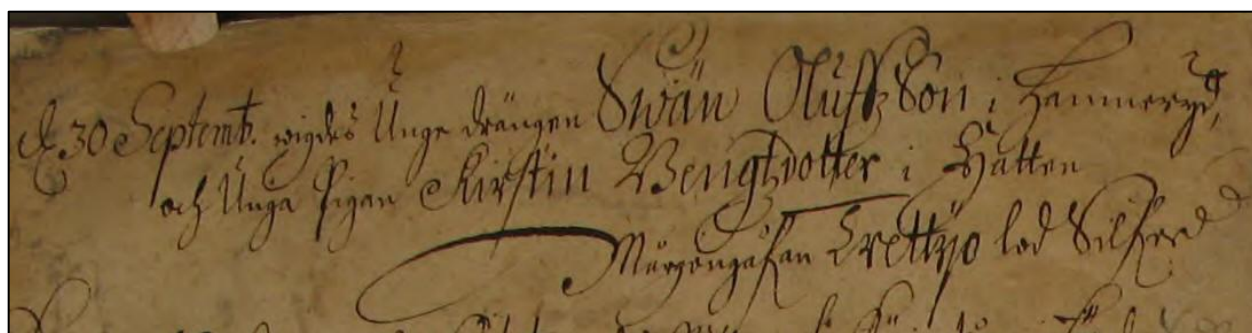 d. 30 Septemb. wigdes Unge drängen Swän Oluffz Son i Hammeryd,
och Unga Pigan Kirstin Bengtzdotter i Hatten
Märgongåfan Trettijo lod Silfwer